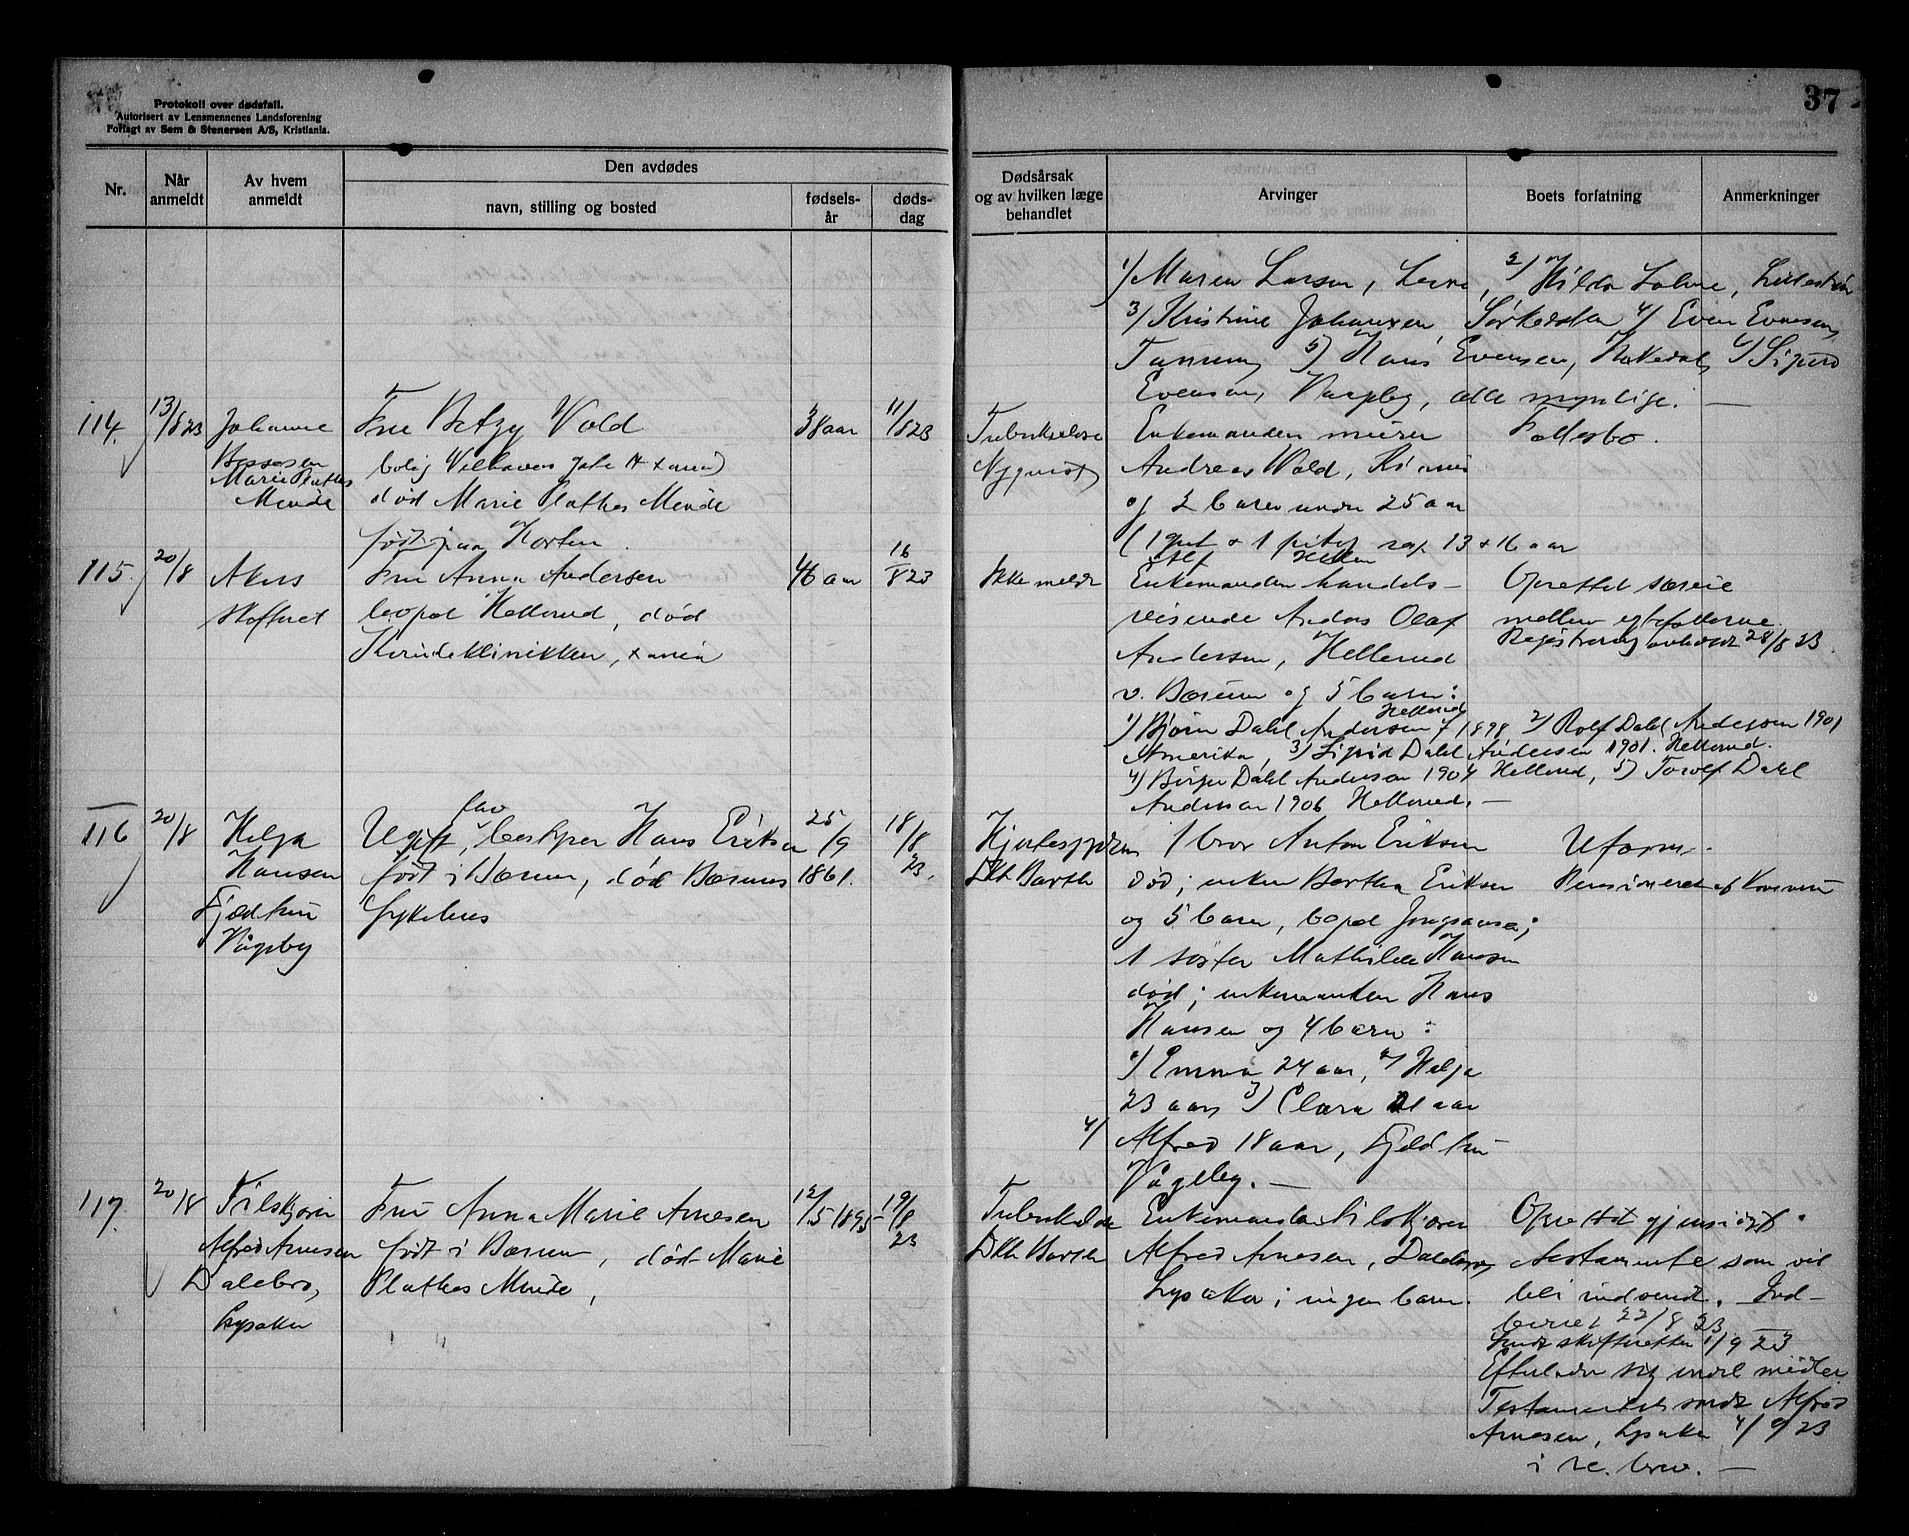 Protokoll over dødsfall.
Autorisert av Lensmennenes Landsforening
Forlagt av Sem & Stenersen A/S, Kristiania.
37
Nr.
Når
anmeldt
Av hvem
anmeldt
Den avdødes
navn, stilling og bosted
fødsels-
år
døds-
dag
Dødsårsak
og av hvilken læge
behandlet
Arvinger
Boets forfatning
Anmerkninger
1) Maren Larsen, 2) Hilda
3) Kristine Johansen Sørkedalen 4) Even Evensen,
Tanum 5) Hans Evensen, Hakedal, 6) Sigurd
Evensen, alle myndige. —
114.
13/8 23
Johanne
Marie Plathes
Minde
Fru Betzy Wold
bolig Welhavens gate
død Marie Plathes Minde
født paa Horten.
38 aar
11/8 23
Nyquist
Enkemanden murer
Andreas Wold,
og 2 barn under 25 aar
(1 gut + 1 13 + 16 aar
Fællesbo.
115.
20/8
Akers
skifteret
Fru Anna Andersen
bopæl Hellerud, død
Kvindeklinikken, Xania
46 aar
16/8 23
Ikke meldt
Enkemanden handels-
reisende Anders Olaf
Andersen, Hellerud
v. Bærum og 5 barn:
1) Bjørn Dahl Andersen f 1898 Hellerud 2) Rolf Dahl Andersen 1901
Amerika, 3) Sigrid Dahl Andersen 1901. Hellerud.
4) Birger Dahl Andersen 1904 Hellerud, 5) Torolf Dahl
Andersen 1906 Hellerud. —
Oprettet særeie
mellem egtefællerne.
Registrering avholdt 28/8 23.
116
20/8
Helga
Hansen
Fjeldtun
Ugift, Hans Eriksen
født i Bærum, død Bærums
sykehus
25/9
1861.
18/8
23.
Dkt Barth
1 bror Anton Eriksen
død; enken Bertha Eriksen
og 5 barn, bopæl
1 søster Mathilde Hansen
død; enkemanden Hans
Hansen og 4 barn:
1) Emma 24 aar, 2) Helga
23 aar, 3) Clara 21 aar
4) Alfred 18 aar, Fjeldtun
Uform.
Pensioneret af Kommun
117.
20/8
Filskjærer
Alfred Arnesen
Dalebro,
Lysaker
Fru Anna Marie Arnesen
født i Bærum, død Marie
Plathes Minde,
12/5 1895
19/8
23
Tuberkulose
Dkt Barth
Enkemanden filskjærer
Alfred Arnesen, Dalebro,
Lysaker; ingen barn.
Oprettet gjensidigt
testamente som vil
bli indsendt. Ind-
22/8 23
Sendt skifteretten 1/9 23
Efterlader sig endel midler
Testamentet sendt Alfred
Arnesen, Lysaker 4/9 23
i re. brev. —